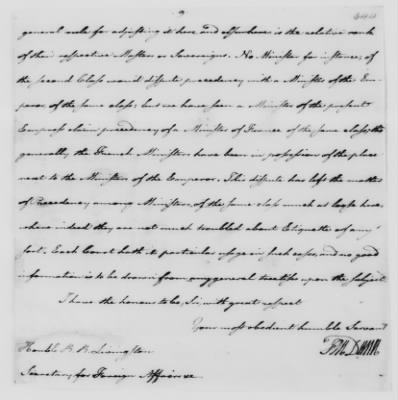 general rule for adjusting it here and elsewhere is the relative rank
of their respective Masters or Sovereigns. No Minister for instance, of
the second Class would dispute precedency with a Minister of the Em-
peror of the same class; but we have seen a Minister of the present
Empress claim precedency of a Minister of France of the same class, tho
generally the French Ministers have been in possession of the place
next to the Ministers of the Emperor. This dispute has left the matter
of Precedency among Ministers, of the same class much at loose here,
where indeed they are not much troubled about Etiquette of any
sort. Each Court hath its particular usage in such cases, and no good
information is to be drawn from any general treatise upon the subject
I have the honour to be, Sir, with great respect
Your most obedient humble Servant
Honble R. R. Livingston
Secretary for Foreign Affairs